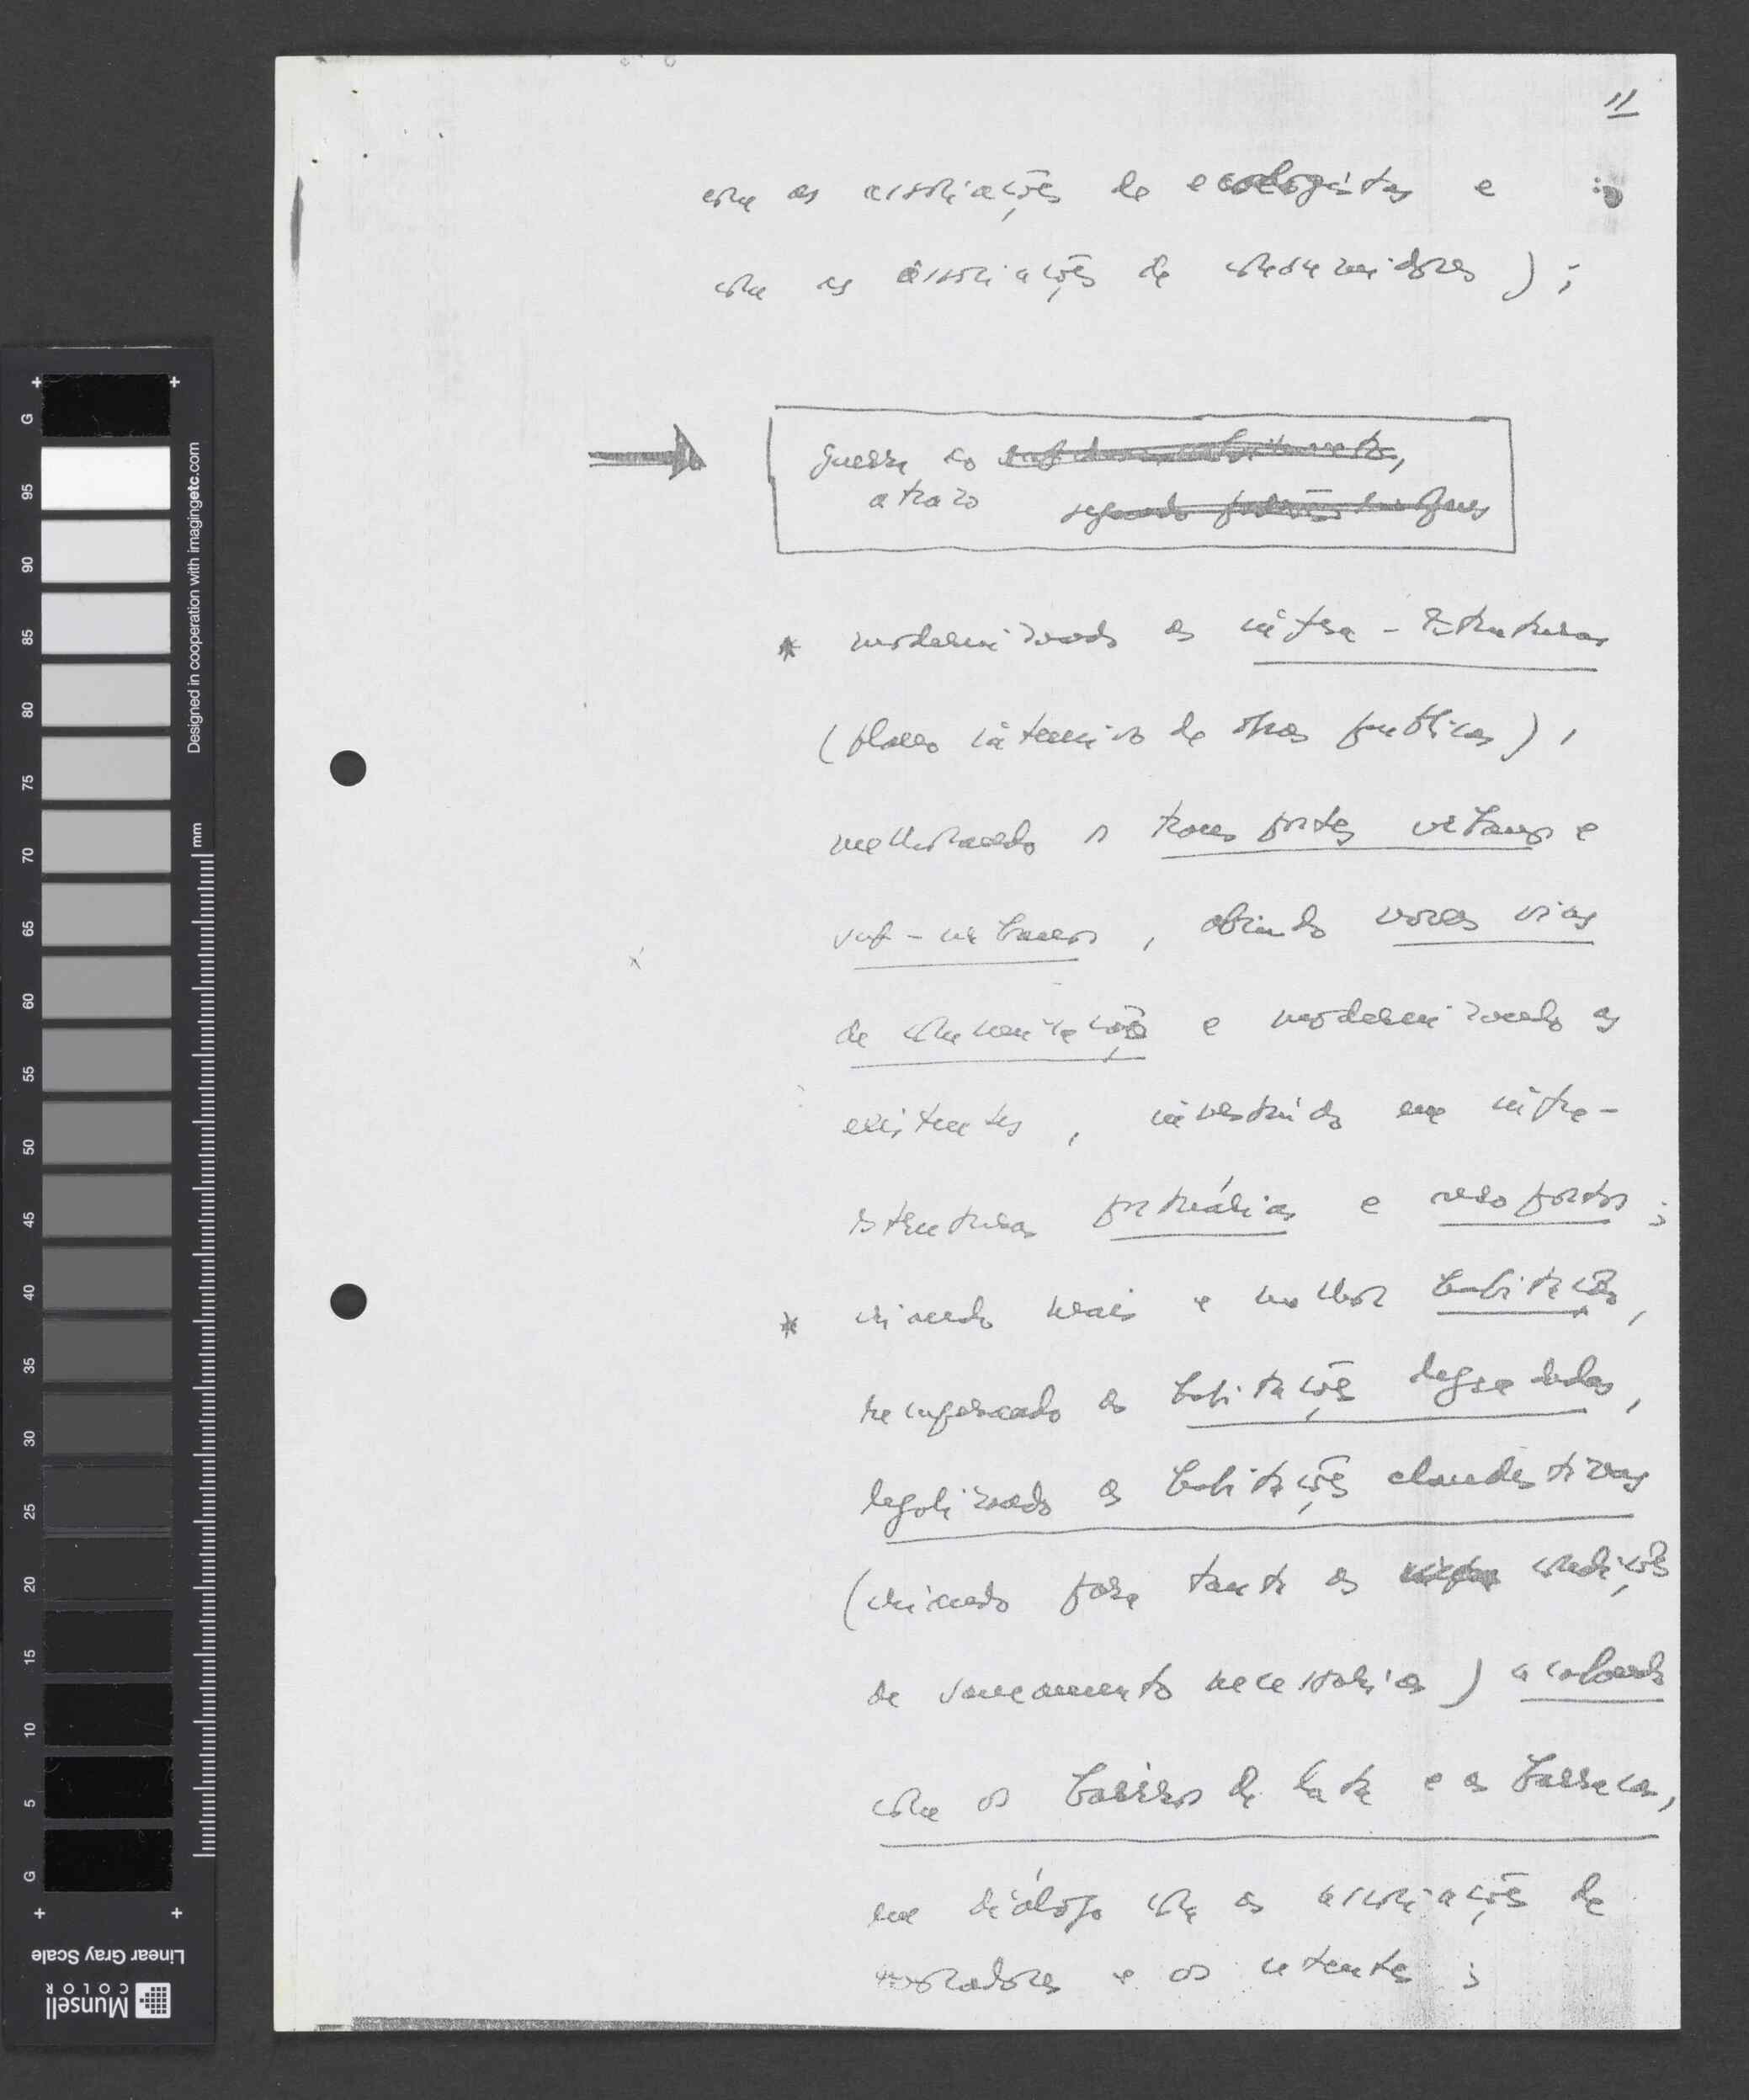 11
com as associações de ecologistas e
com as associações de consumidores);
guerra ao subdesenvolvimento,
atrazo segundo
* modernizando as infra-estruturas
(plano intensivo de obras publicas),
melhorando os transportes urbanos e
sub-urbanos, abrindo novas vias
de comunicação e modernizando as
existentes, investindo em infra-
estruturas portuárias e aeroportos;
* criando mais e melhor habitação,
recuperando as habitações degradadas,
legalizando as habitações clandestinas
(criando para tanto as condições
de saneamento necessárias) acabando
com os bairros de lata e as barracas,
em diálogo com as associações de
moradores e os utentes;
G
95
90
85
80
75
70
65
60
55
50
45
40
35
30
25
20
15
10
5
G
Designed in cooperation with imagingetc.com
mm
Linear Gray Scale
Munsell
COLOR